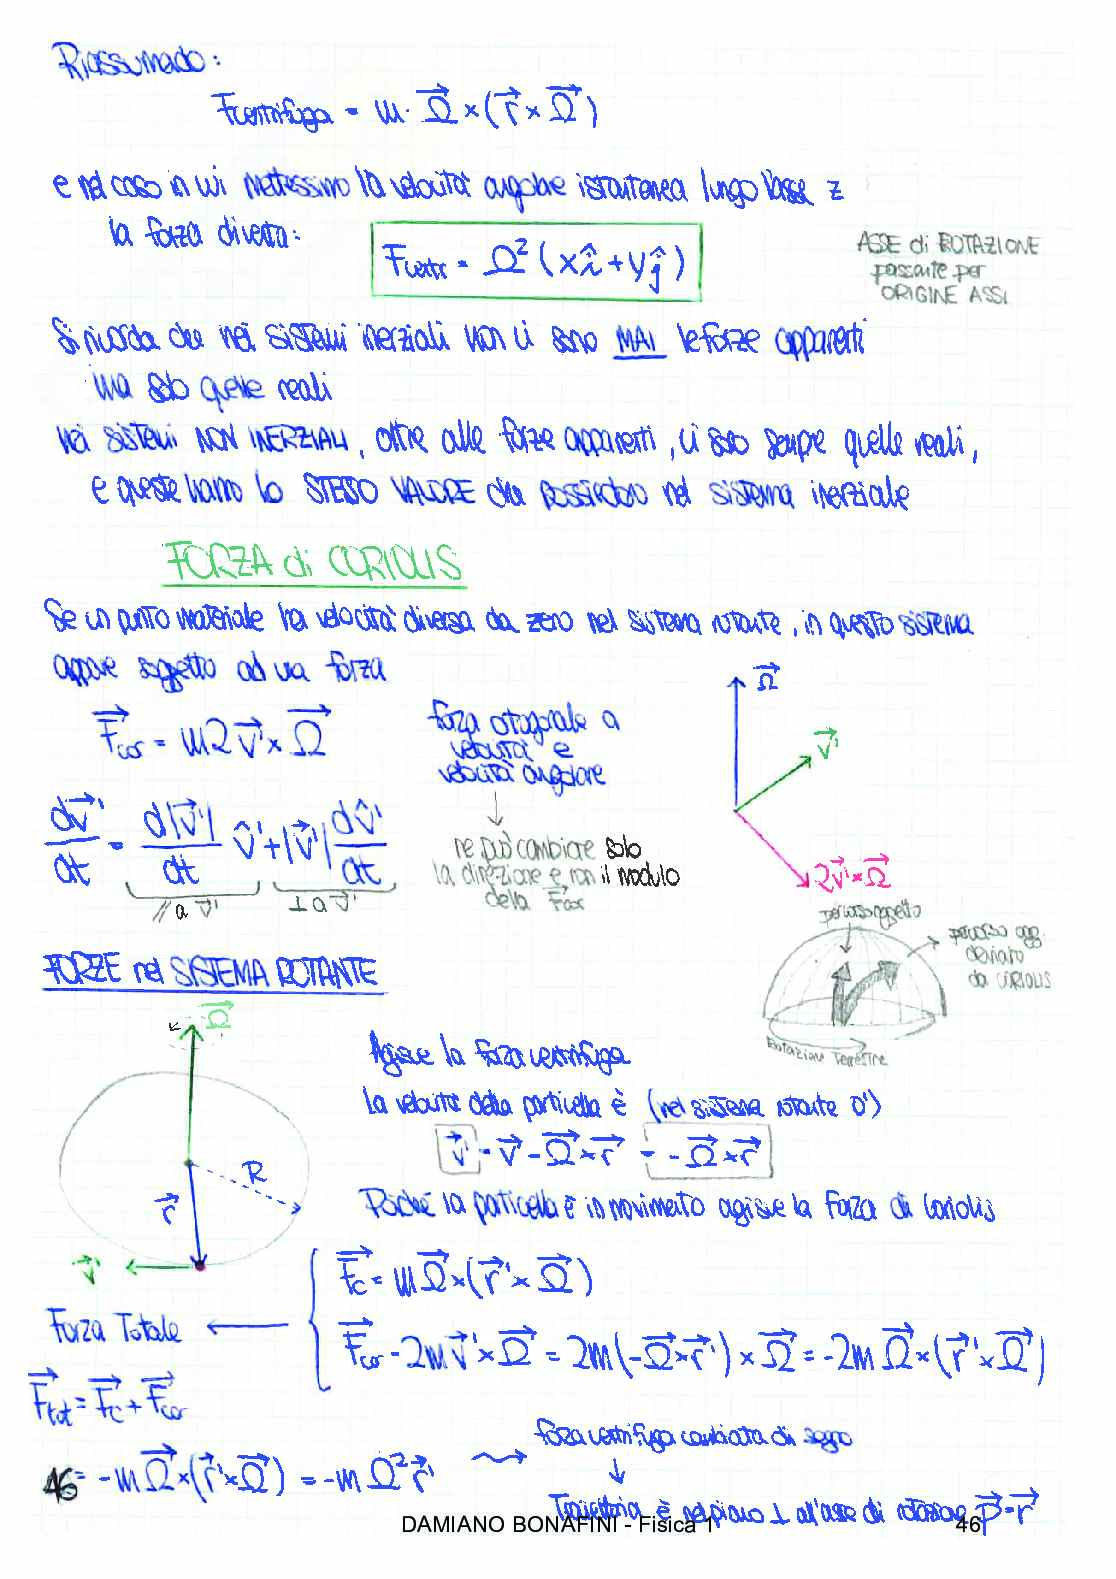 Riassumendo:
Fcentrifuga = m · Ω⃗ × (r⃗ × Ω⃗)
e nel caso in cui mettessimo la velocità angolare istantanea lungo l'asse z
la forza diventa:
Fcentr = Ω² (x î + y ĵ)
ASSE di ROTAZIONE
passante per
ORIGINE ASSI
Si ricorda che nei sistemi inerziali non ci sono MAI le forze apparenti
ma solo quelle reali
nei sistemi NON INERZIALI, oltre alle forze apparenti, ci sono sempre quelle reali,
e queste hanno lo STESSO VALORE che possiedono nel sistema inerziale
FORZA di CORIOLIS
Se un punto materiale ha velocità diversa da zero nel sistema rotante, in questo sistema
appare soggetto ad una forza
F⃗cor = m2 v⃗' × Ω⃗
forza ortogonale a
velocità e
velocità angolare
Ω⃗
v⃗'
2v⃗' × Ω⃗
dv⃗'/dt = d|v⃗'|/dt v̂' + |v⃗'| dv̂'/dt
// a v⃗'
⊥ a v⃗'
ne può cambiare solo
la direzione e non il modulo
della Fcor
percorso oggetto
percorso ogg.
deviato
da CORIOLIS
Rotazione Terrestre
FORZE nel SISTEMA ROTANTE
Ω⃗
R
r⃗
v⃗'
Agisce la forza centrifuga
La velocità della particella è (nel sistema rotante O')
v⃗' = v⃗ - Ω⃗ × r⃗ = - Ω⃗ × r⃗
Poiché la particella è in movimento agisce la forza di Coriolis
F⃗c = m Ω⃗ × (r⃗' × Ω⃗)
F⃗cor = 2m v⃗' × Ω⃗ = 2m (-Ω⃗ × r⃗') × Ω⃗ = -2m Ω⃗ × (r⃗' × Ω⃗)
Forza Totale
F⃗tot = F⃗c + F⃗cor
= -m Ω⃗ × (r⃗' × Ω⃗) = -m Ω² r⃗'
forza centrifuga cambiata di segno
Traiettoria è nel piano ⊥ all'asse di rotazione ρ⃗ = r⃗
46
DAMIANO BONAFINI - Fisica 1
46